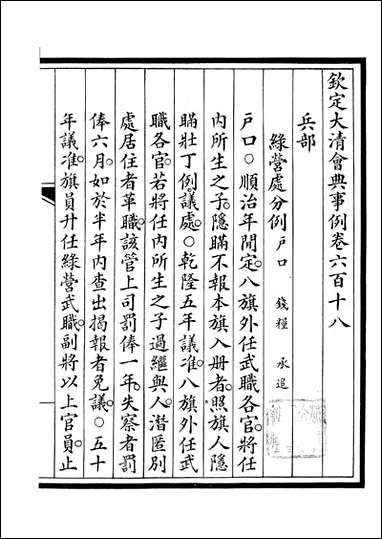 欽定大清會典事例卷六百十八
兵部
綠營處分例 戶口 錢糧 承追
戶口○順治年間定八旗外任武職各官將任
內所生之子隱瞞不報本旗入冊者照旗人隱
瞞壯丁例議處○乾隆五年議准八旗外任武
職各官若將任內所生之子過繼與人潛匿別
處居住者革職該管上司罰俸一年失察者罰
俸六月如於半年內查出揭報者免議○五十
年議准旗員升任綠營武職副將以上官員止